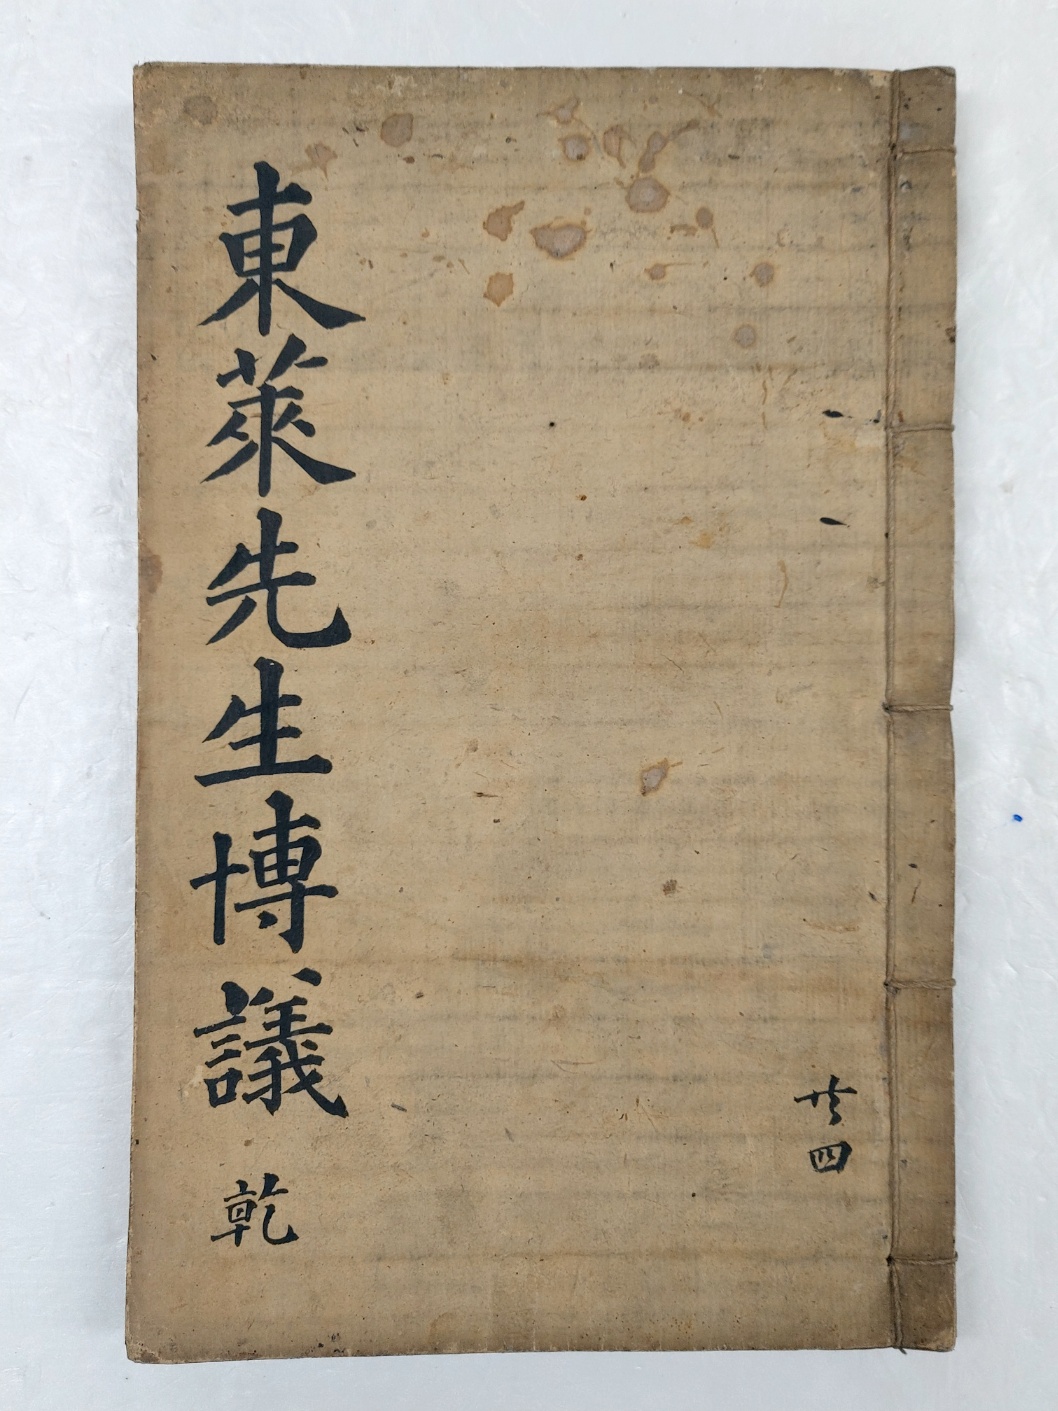 東萊先生博議 乾
共四